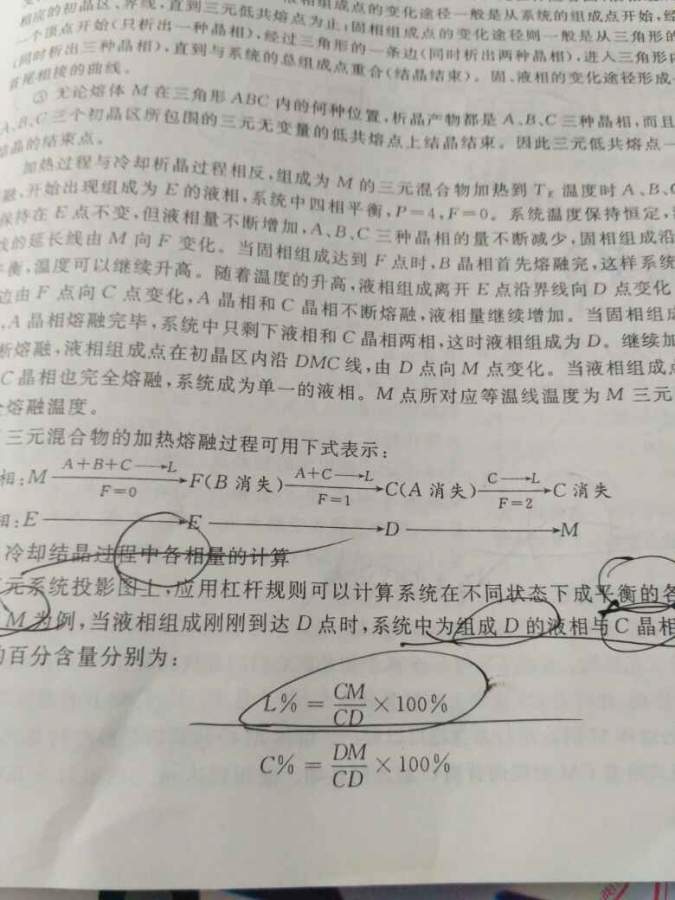 液相组成点的变化途径一般是从系统的组成点开始,经
相应的初晶区、界线,直到三元低共熔点为止;固相组成点的变化途径则一般是从三角形的
一个顶点开始(只析出一种晶相),经过三角形的一条边(同时析出两种晶相),进入三角形内
(同时析出三种晶相),直到与系统的总组成点重合(结晶结束)。固、液相的变化途径形成一
首尾相接的曲线。
③ 无论熔体 M 在三角形 ABC 内的何种位置,析晶产物都是 A、B、C 三种晶相,而且
A、B、C 三个初晶区所包围的三元无变量的低共熔点上结晶结束。因此三元低共熔点一
结晶的结束点。
加热过程与冷却析晶过程相反,组成为 M 的三元混合物加热到 TE 温度时 A、B、C
融,开始出现组成为 E 的液相,系统中四相平衡,P=4,F=0。系统温度保持恒定,
保持在 E 点不变,但液相量不断增加,A、B、C 三种晶相的量不断减少,固相组成沿
线的延长线由 M 向 F 变化。当固相组成达到 F 点时,B 晶相首先熔融完,这样系统
衡,温度可以继续升高。随着温度的升高,液相组成离开 E 点沿界线向 D 点变化
边由 F 点向 C 点变化,A 晶相和 C 晶相不断熔融,液相量继续增加。当固相组成
,A 晶相熔融完毕,系统中只剩下液相和 C 晶相两相,这时液相组成为 D。继续加
断熔融,液相组成点在初晶区内沿 DMC 线,由 D 点向 M 点变化。当液相组成点
C 晶相也完全熔融,系统成为单一的液相。M 点所对应等温线温度为 M 三元
全熔融温度。
三元混合物的加热熔融过程可用下式表示:
相:M A+B+C→L F=0 →F(B 消失) A+C→L F=1 →C(A 消失) C→L F=2 →C 消失
相:E →E →D →M
冷却结晶过程中各相量的计算
元系统投影图上,应用杠杆规则可以计算系统在不同状态下成平衡的各
M 为例,当液相组成刚刚到达 D 点时,系统中为组成 D 的液相与 C 晶相
的百分含量分别为:
L% = CM/CD × 100%
C% = DM/CD × 100%